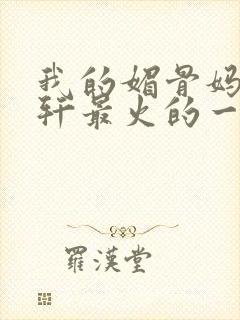 我的媚骨妈
轩最火的一
羅漢堂